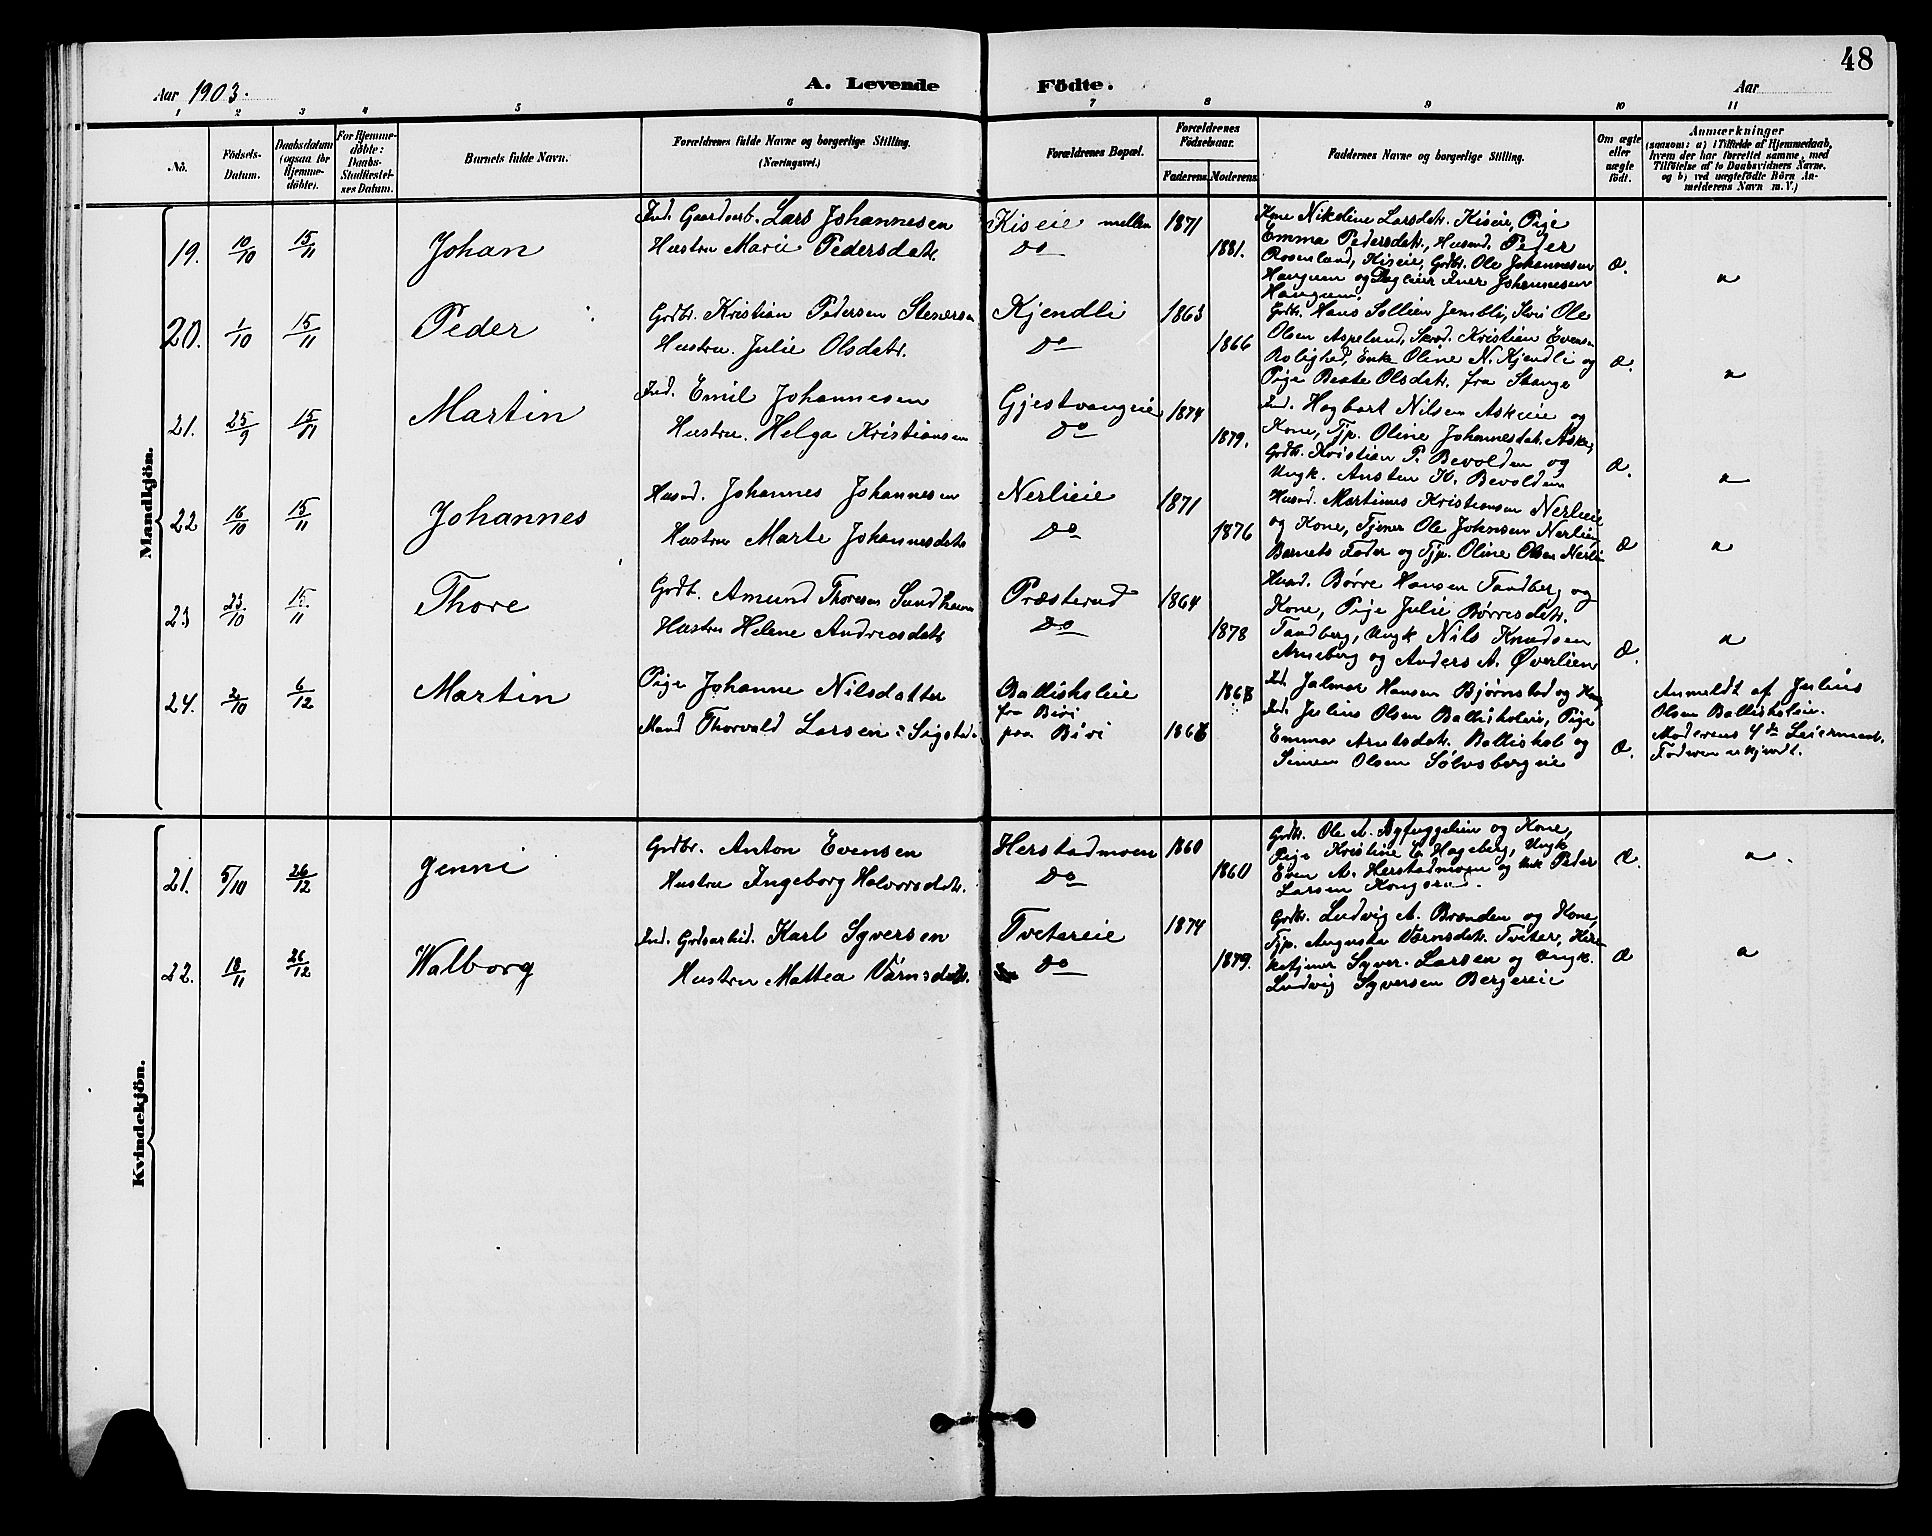 48
Aar 1903. A. Levende Födte. Aar
1 2 3 4 5 6 7 8 9 10 11
No. Födsels-Datum. Daabsdatum (ogsaa for Hjemme-döbte). For Hjemme-döbte: Daabs-Stadfæstel-ses Datum. Barnets fulde Navn. Forældrenes fulde Navne og borgerlige Stilling. (Næringsvei.) Forældrenes Bopæl. Forældrenes Födselsaar. Faderens. Moderens. Faddernes Navne og borgerlige Stilling. Om ægte eller uægte födt. Anmærkninger (saasom: a) i Tilfælde af Hjemmedaab, hvem der har forrettet samme, med Tilföielse af to Daabsvidners Navne. og b) ved uægtefödte Börn Anmelderens Navn m. V.)
Mandkjön.
19. 10/10 15/11 Johan
Ind. Gaardarb. Lars Johannesen
Hustru Marie Pedersdatr.
Kiseie mellem
Do
1871
1881.
Kone Nikoline Larsdatr. Kiseie, Pige
Emma Pedersdatr., Husmd. Peder
Rosenlund, Kiseie, Grdbr. Ole Johannesen
Haugum og Iver Johannesen
Haugum.
Æ.
"
20. 1/10 15/11 Peder
Grdbr. Kristian Pedersen Stenersen
Hustru. Julie Olsdatr.
Kjendli
Do
1863
1866
Grdbr. Hans Sollien Jembli, Ole
Olsen Aspelund, Skræd. Kristian Evensen
Rolighed, Enke Oline N. Kjendli og
Pige Beate Olsdatr. fra Stange
Æ.
"
21. 25/9 15/11 Martin
Ind. Emil Johannesen
Hustru. Helga Kristiansen
Gjestvangeie
Do
1874
1879.
Ind. Hagbart Nilsen Askeie og
Kone, Tjp. Oline Johannesdatr. Aske,
Grdbr. Kristian P. Bevolden og
Ungk. Austen K. Bevolden
Æ.
"
22 16/10 15/11 Johannes
Husmd. Johannes Johannesen
Hustru Marte Johannesdatr
Nerlieie
Do
1871
1876
Husmd. Martinus Kristiansen Nerlieie
og Kone, Tjener Ole Johnsen Nerlien
Barnets Fader og Tjp. Oline Olsen Nerli
Æ
"
23 23/10 15/11 Thore
Grdb. Amund Thoresen Sundheim
Hustru Helene Andreasdatr
Præsterud
Do
1864
1878
Husmd. Børre Hansen Tandberg og
Kone, Pige Julie Børresdatr.
Tandberg, Ungk Nils Knudsen
Arneberg og Anders A. Øverlien
Æ.
"
24. 2/10 6/12 Martin
Pige Johanne Nilsdatter
Mand Thorvald Larsen Sigstad.
Ballishøleie
fra Biri
paa Biri
1868
186
Ind. Jalmar Hansen Bjørnstad og Kone,
Ind. Julius Olsen Ballisholeie, Pige
Emma Arntsdatr. Ballishol og
Simen Olsen Sølvsbergeie
Æ.
Anmeldt af Julius
Olsen Ballisholeie.
Moderens 4de Leiermaal.
Faderen ukjendt.
Kvindekjön.
21. 5/10 26/12 Jenni
Grdbr. Anton Evensen
Hustru Ingeborg Halvorsdatr.
Herstadmoen
Do
1860
1860
Grdbr. Ole A. og Kone,
Pige Kristine E Hageberg, Ungk
Even A. Herstadmoen og Peder
Larsen
Æ.
"
22. 18/11 26/12 Walborg
Ind. Grdsarbeid. Karl Syversen
Hustru Mattea Værnsdatr.
Tvetereie
Do
1874
1879.
Grdbr. Ludvig A. Brænden og Kone,
Tjp. Augusta Værnsdatr. Tveter, Kir-
ketjener Syver Larsen og Ungk.
Ludvig Syversen Bergereie
Æ
"